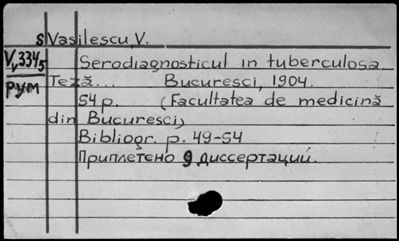 s Vasilescu, V.
V,334,5 Serodiagnosticul in tuberculosa
рум Teză... Bucuresci, 1904.
54 p. (Facultatea de medicină
din Bucuresci)
Bibliogr. p. 49-54
Приплетено 9 диссертаций.